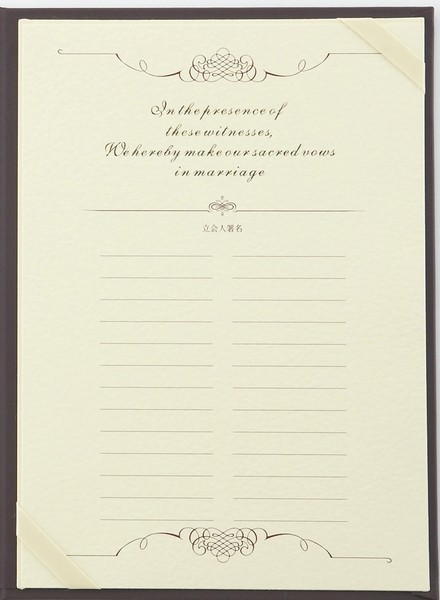 In the presence of
these witnesses,
We hereby make our sacred vows
in marriage
立会人署名